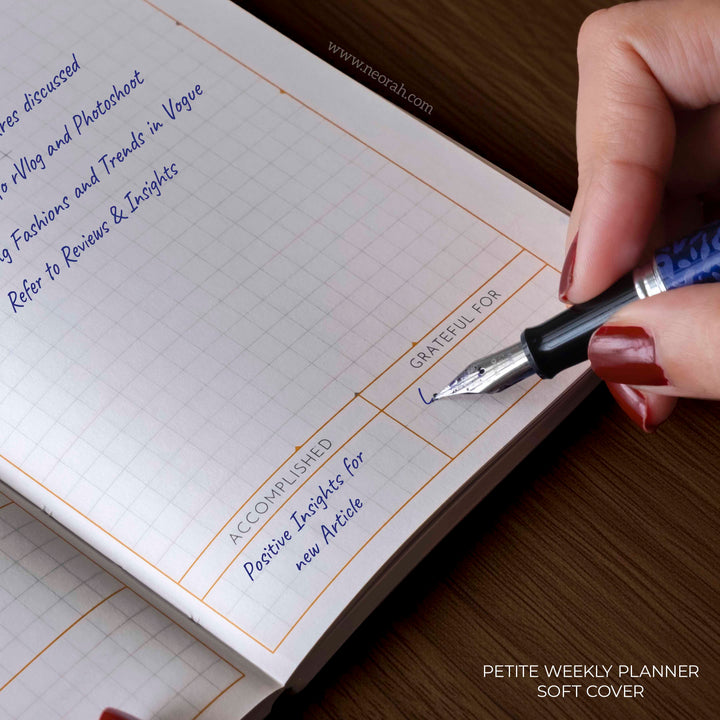 www.neorah.com
discussed
rVlog and Photoshoot
Fashions and Trends in Vogue
Refer to Reviews & Insights
GRATEFUL FOR
ACCOMPLISHED
Positive Insights for
new Article
PETITE WEEKLY PLANNER
SOFT COVER